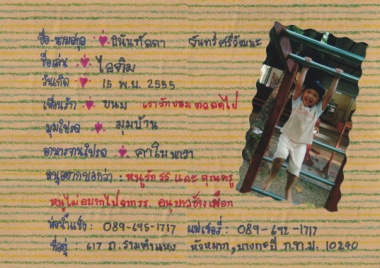 ชื่อ-นามสกุล ศรีวัฒนะ
ชื่อเล่น ไอติม
วันเกิด 15 พ.ย. 2555
เพื่อนรัก ขนม เรารักขนม ตลอดไป
มุมโปรด มุมบ้าน
อาหารจานโปรด
หนูอยากบอกว่า : หนูรัก รร และ คุณครู
หนูไม่อยากไปจาก รร. อนุบาลช้างเผือก
: 089-645-1717 แม่ : 089-692-1717
ที่อยู่ : 617 ถ. รามคำแหง หัวหมาก, บางกะปิ ก.ท.ม. 10240